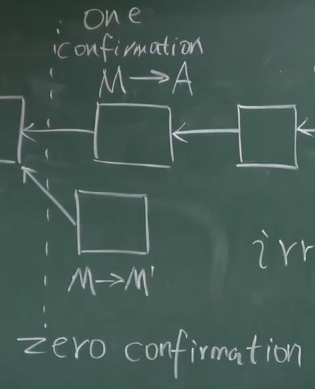 one
confirmation
M → A
M → M'
irr
zero confirmation